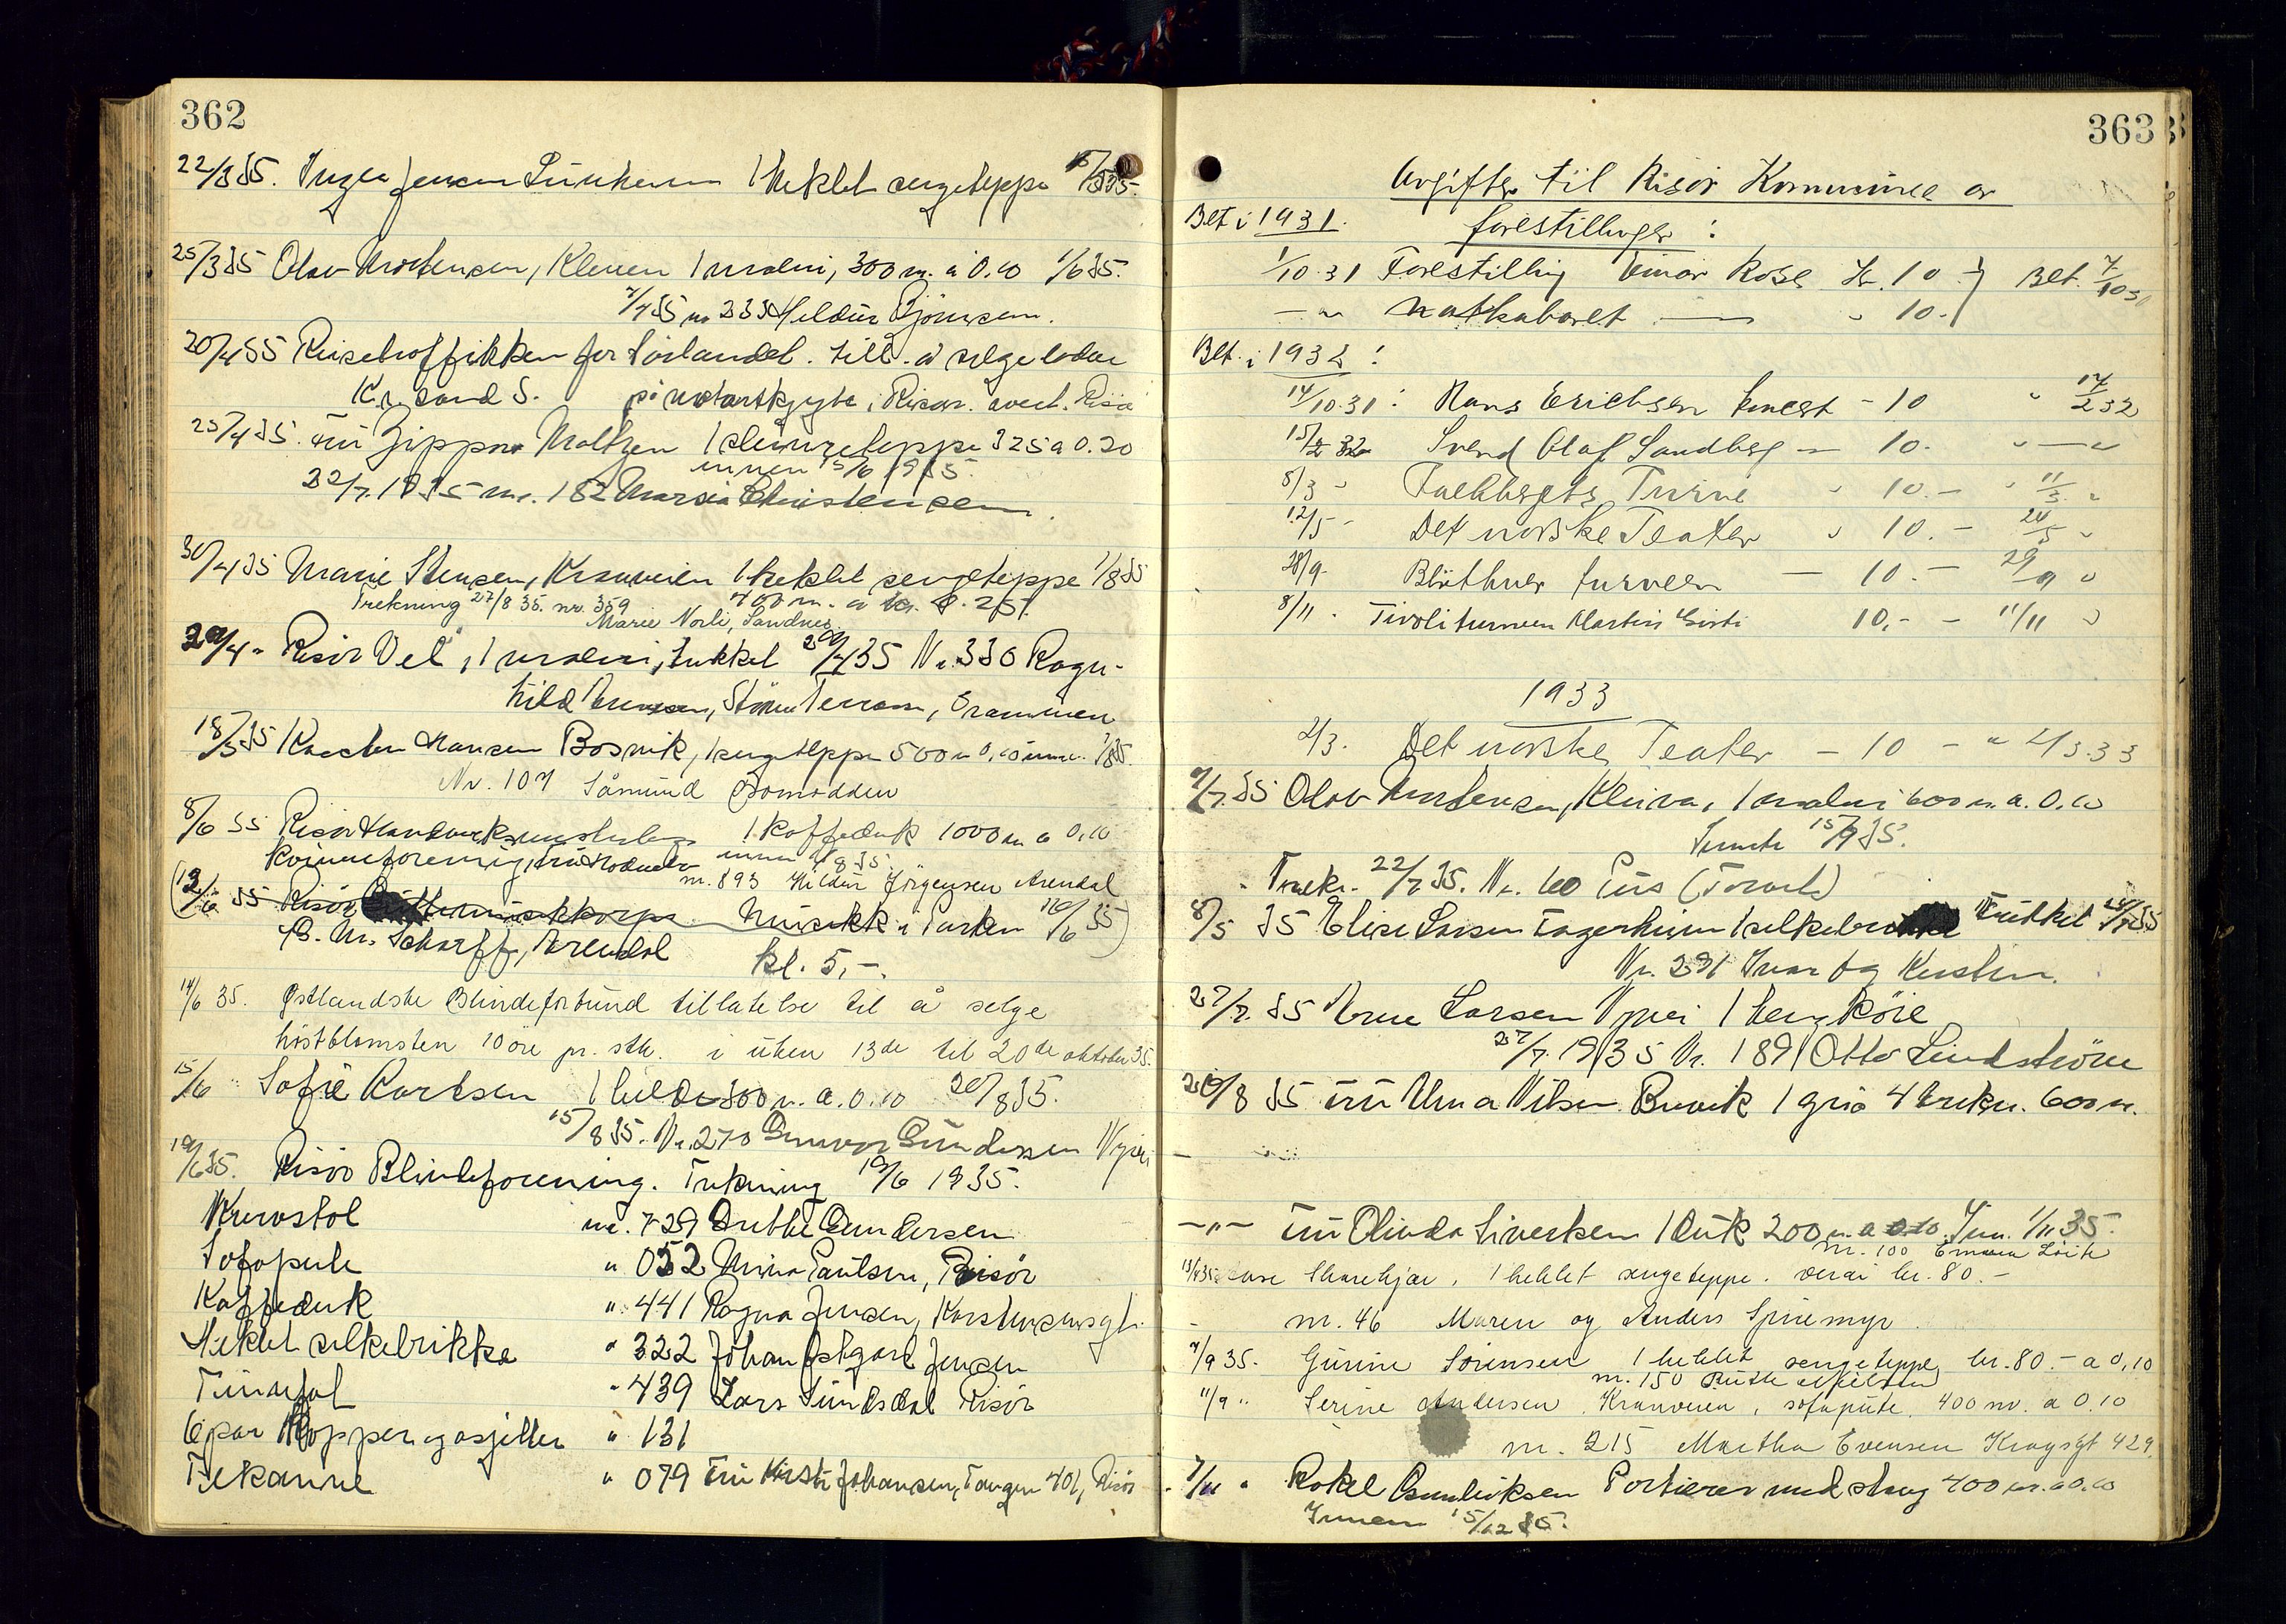 362
22/3 35. Inga Jensen 1 Heklet sengeteppe 15/5 35.
25/3 35 Olav Mortensen, Kleven 1 maleri, 300 nr. à 0.10 1/6 35.
7/7 35 nr 233 Heldur Björnsen.
20/4 35 Reisetrafikken for Sörlandet. till. å selge lodder
Kr.sand S. på motorskjyte i Risør.
25/4 35. Frü Zippora Moltzen 1 teppe 325 a 0.20
innen 15/6 1935.
22/7. 1935 nr. 182 Maria Christensen.
30/4 35 Marie Stensen, Kranveien 1 heklet sengeteppe 1/8 35
400 nr. a kr. 0.25.
Trekning 27/8 35. nr. 359
Marie Norli, Sandnes
30/4 " Risör Vel, 1 maleri, trukket 30/4 35 Nr. 330 Ragn-
hild Terrasse, Drammen
18/5 35 Karsten Hansen Bosvik, 1 sengeteppe 500 a 0.10 innen 1/8 35.
Nr. 107 Såmund Bomodden
8/6 35 Risör Handverksmesterlags 1 Kaffeduk 1000 nr a 0,10
Kvinneforening, innen 1/8 35
nr. 893 Hildur Jörgensen Arendal
(12/6 35 Risör Musikk i Parken 16/6 35)
Scharff, Arendal kl. 5,-.
14/6 35. Østlandske Blindeforbund tillatelse til å selge
høstblomsten 10 öre pr. stk. i uken 13de til 20de oktober 35.
15/6 " Sofie Karlsen 300 nr. a. 0.10 20/8 35.
15/8 35. Nr. 270 Gunvor Gundersen
19/6 35. Risör Blindeforening. Trekning 19/6 1935.
Kurvstol nr. 729 Dutte Gundersen
Sofapute " 052 Mina Paulsen, Risör
Kaffeduk " 441 Ragna Jensen, Karstensensgt.
Heklet silkebrikke " 322 Johan Østgard Jensen
Tinnfat " 439 Lars Sundsdal Risör
6 par " 131
Tekanne " 079 Frü Kirsti Johansen, Tangen 401, Risör
363
Avgifter til Risör Kommune av
forestillinger :
Blt i 1931.
1/10.31 Forestilling Einar Rose Kr. 10 Blt. 7/10 31
— " — Natkabaret — " 10.-
Blt. i 1932 :
14/10.31 : Hans Erichsen - 10 " 12/2 32
15/2 32 Svend Olaf Sandberg — 10. " — "
8/3 - Turne " 10.- " 11/3 "
12/5 - Det norske Teater " 10.- 24/5 "
28/9 Blüthner turneen — 10.- 29/9 "
8/11 - Tivoliturneen Martin Gisti 10,- - 11/11 "
1933
2/3. Det norske Teater - 10 - " 2/3.33
7/7. 35 Olav Mortensen, Kleiva, 1 maleri 600 nr. a. 0.10
15/9 35.
Trekn. 22/7 35. Nr. 60
8/5 35 Elise Larsen Fagerheim Trükket 26/7 35
Nr. 291 Ivar og Kersten.
27/7. 35 Larsen
27/7. 1935 Nr. 189 Otto Lindström
20/8 35 Frü Alma Nilsen Buvik 1 gris 4 trekn. 600 nr.
—"— Frü Olinda Siverksen 1 Duk 200 nr. a 0.10. Inn. 1/11 35.
nr. 100
13/8 35 1 heklet sengeteppe. verdi kr. 80.-
nr. 46 Maren og Anders Spinemyr
7/9 35. Gurine Sörensen 1 heklet sengeteppe, kr. 80.- a 0,10
nr. 150
11/9 " Serine Andersen, Kranveien, sofapüte. 400 nr. a 0.10
nr. 215 Martha Evensen Kragsgt 429
7/11 " Rakel Portierer med stang 400 nr. a 0.10
Innen 15/12 35.